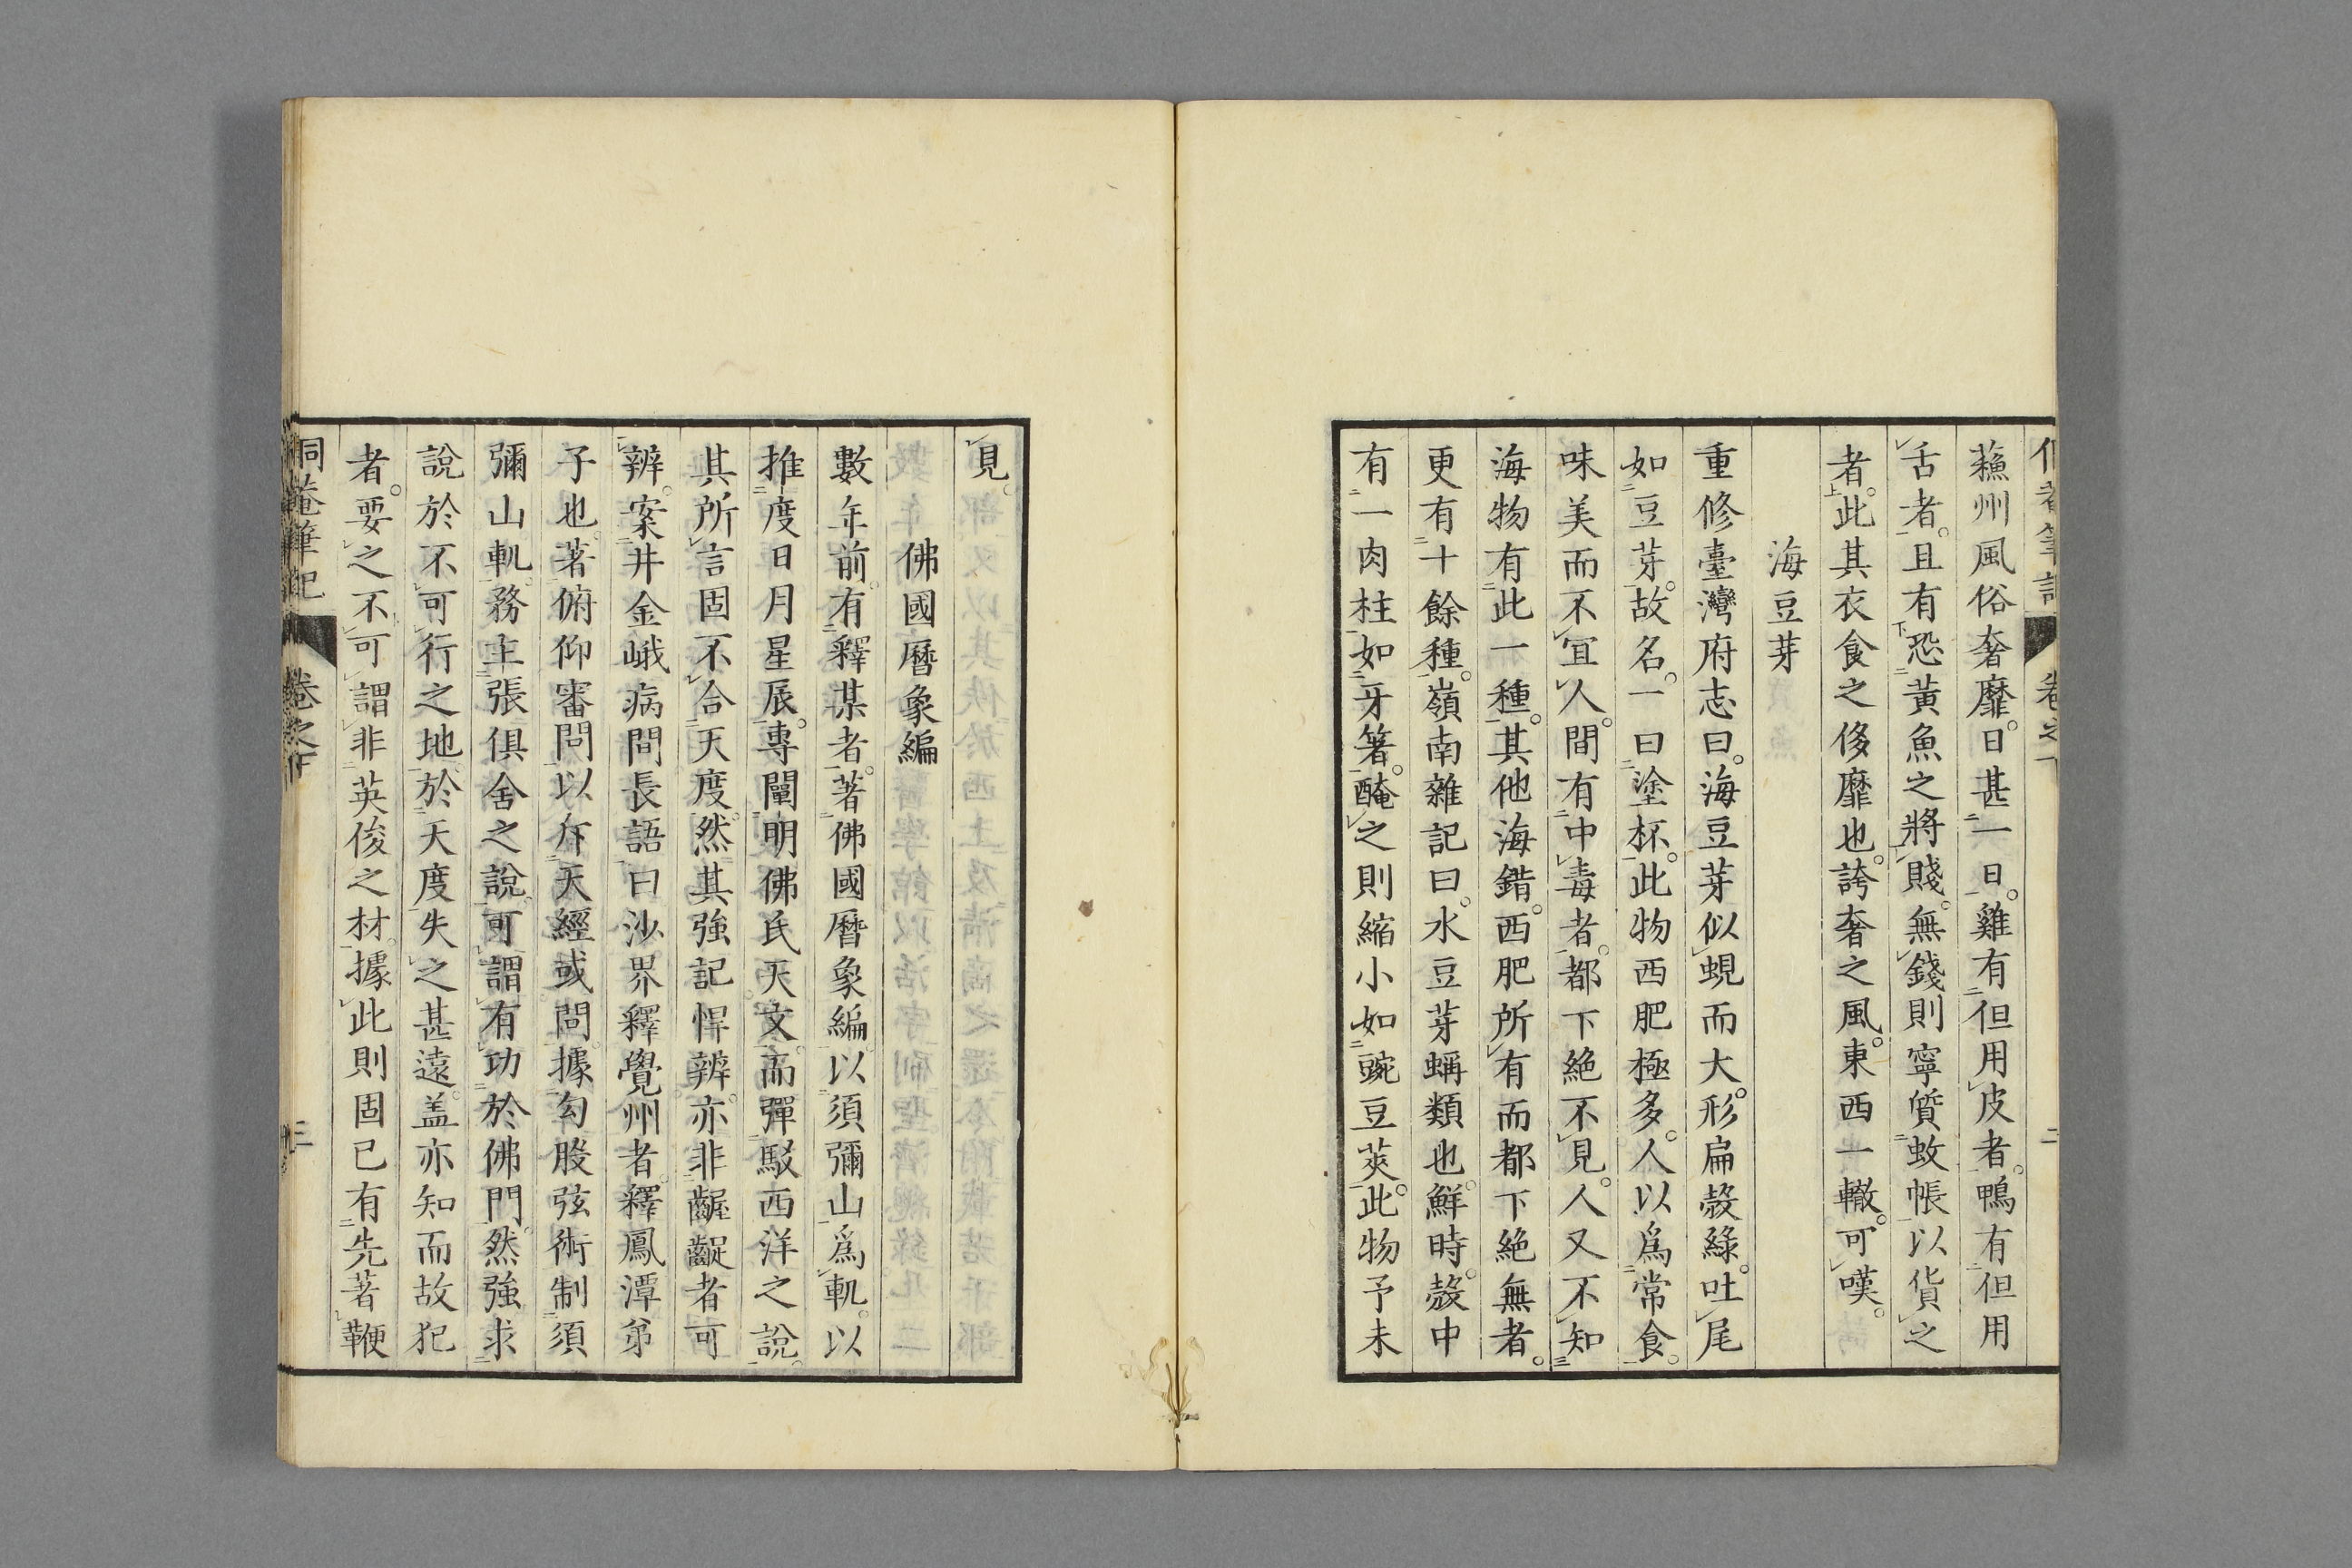 蘓州風俗奢靡。日甚一日。雞有但用皮者。鴨有但用
舌者。且有恐黃魚之將賤。無錢則寧質蚊帳以貨之
者。此其衣食之侈靡也。誇奢之風。東西一轍。可嘆。
海豆芽
重修臺灣府志曰。海豆芽似蜆而大。形扁殼綠。吐尾
如豆芽。故名。一曰塗杯。此物西肥極多。人以爲常食。
味美而不宜人。間有中毒者。都下絶不見。人又不知
海物有此一種。其他海錯。西肥所有而都下絶無者。
更有十餘種。嶺南雜記曰。水豆芽蝻類也。鮮時。殼中
有一肉柱如牙箸。醃之則縮小如豌豆莢。此物予未
見。
佛國曆象編
數年前。有釋某者。著佛國曆象編。以須彌山爲軌。以
推度日月星辰。專闡明佛氏天文。而彈駁西洋之說。
其所言固不合天度。然其強記悍辨。亦非齷齪者可
辨。案井金峨病間長語曰沙界釋覺州者。釋鳳潭弟
子也。著俯仰審問。以斥天經或問。據勾股弦術制須
彌山軌。務主張俱舍之說。可謂有功於佛門。然強求
說於不可行之地。於天度失之甚遠。盖亦知而故犯
者。要之不可謂非英俊之材。據此則固已有先著鞭
侗菴筆記 卷之下 三